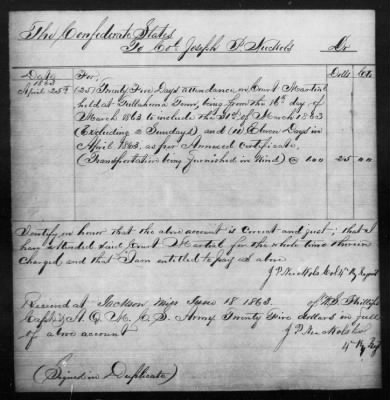 The Confederate States
To Col. Joseph P. Nuckols Dr
Date For, Dolls Cts
1863
April 25th (25) Twenty Five Days attendance on Court Martial
held at Tullahoma Tenn, being from the 16th day of
March 1863 to include the 31st of March 1863
(Excluding 2 Sundays) and (11) Eleven Days in
April 1863, as per Annexed Certificate,
(Transportation being furnished in Kind) @ 1.00 25 00
I certify on honor that the above account is Correct and just; that I
have attended said Court Martial for the whole time therein
Charged and that I am entitled to pay as above
J P Nuckols Col 4th Ky Regt
Received at Jackson Miss June 18 1863. of
Capt & A. Q. M. C. S. Army Twenty Five dollars in full
of above account
J P Nuckols Col
4th Ky Regt
(Signed in Duplicate)